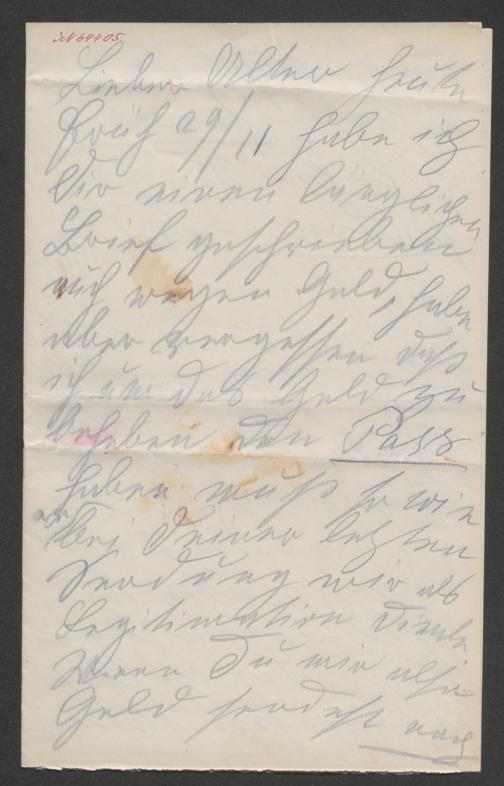 IN 64405
Lieber Alter heute
früh 29/11 habe ich
Dir einen länglichen
Brief geschrieben
auch wegen Geld, habe
aber vergessen daß
ich um das Geld zu
beheben den Pass
haben muß so wie
er bei Deiner letzten
Sendung mir als
Legitimation diente
Wenn Du mir also
Geld sendest